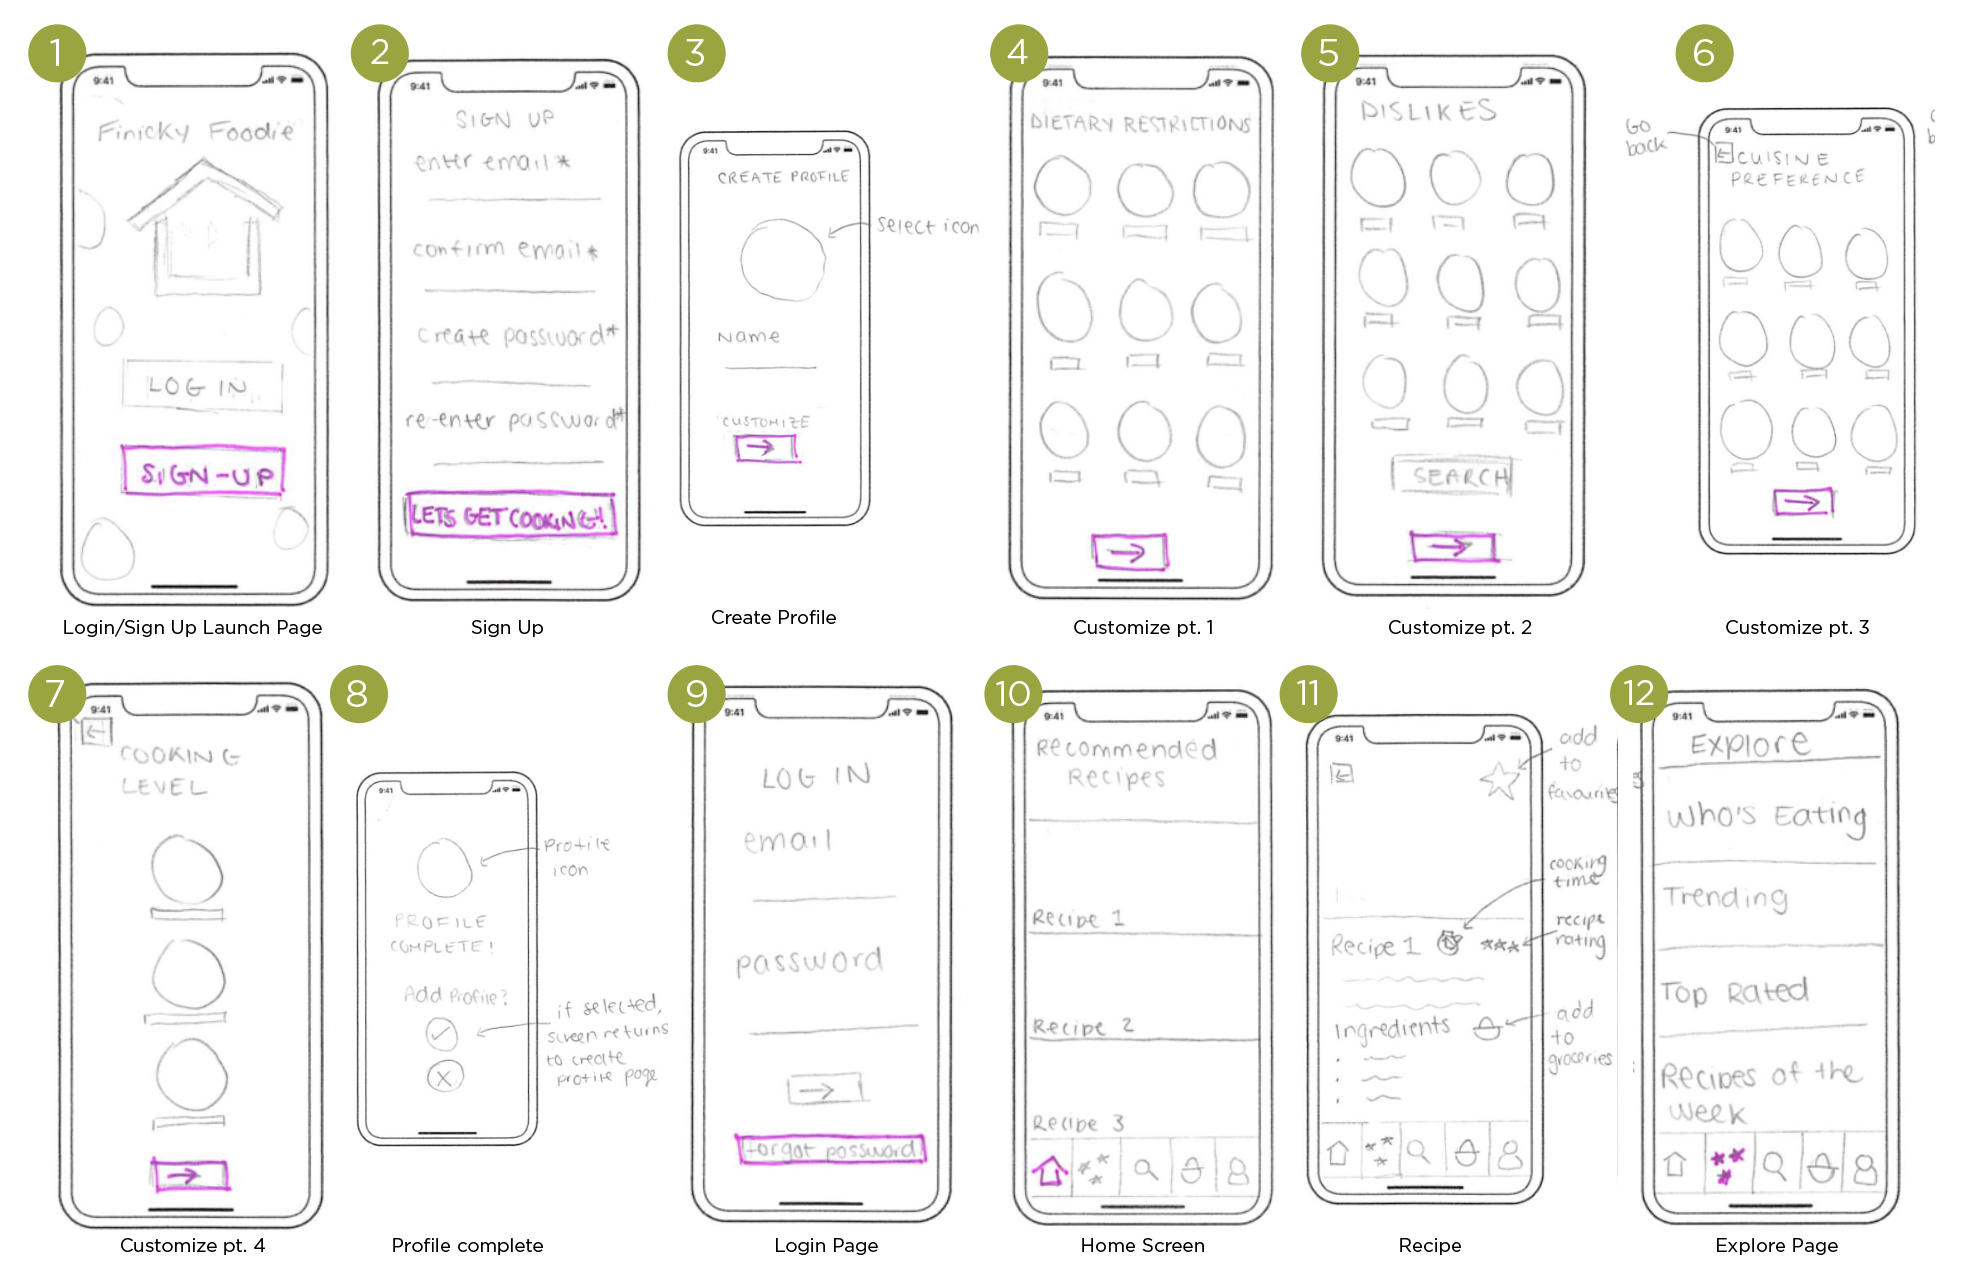 1
9:41
Finicky Foodie
LOG IN
SIGN-UP
Login/Sign Up Launch Page
2
9:41
SIGN UP
enter email*
confirm email*
create password*
re-enter password*
LETS GET COOKING!
Sign Up
3
9:41
CREATE PROFILE
select icon
Name
CUSTOMIZE
Create Profile
4
9:41
DIETARY RESTRICTIONS
Customize pt. 1
5
9:41
DISLIKES
SEARCH
Customize pt. 2
6
GO
back
9:41
CUISINE
PREFERENCE
Customize pt. 3
7
9:41
COOKING
LEVEL
Customize pt. 4
8
9:41
Profile
icon
PROFILE
COMPLETE!
Add Profile?
if selected,
screen returns
to create
profile page
Profile complete
9
9:41
LOG IN
email
password
forgot password
Login Page
10
9:41
Recommended
Recipes
Recipe 1
Recipe 2
Recipe 3
Home Screen
11
9:41
add
to
favourites
cooking
time
Recipe 1
recipe
rating
Ingredients
add
to
groceries
Recipe
12
9:41
Explore
Who's Eating
Trending
Top Rated
Recipes of the
week
Explore Page